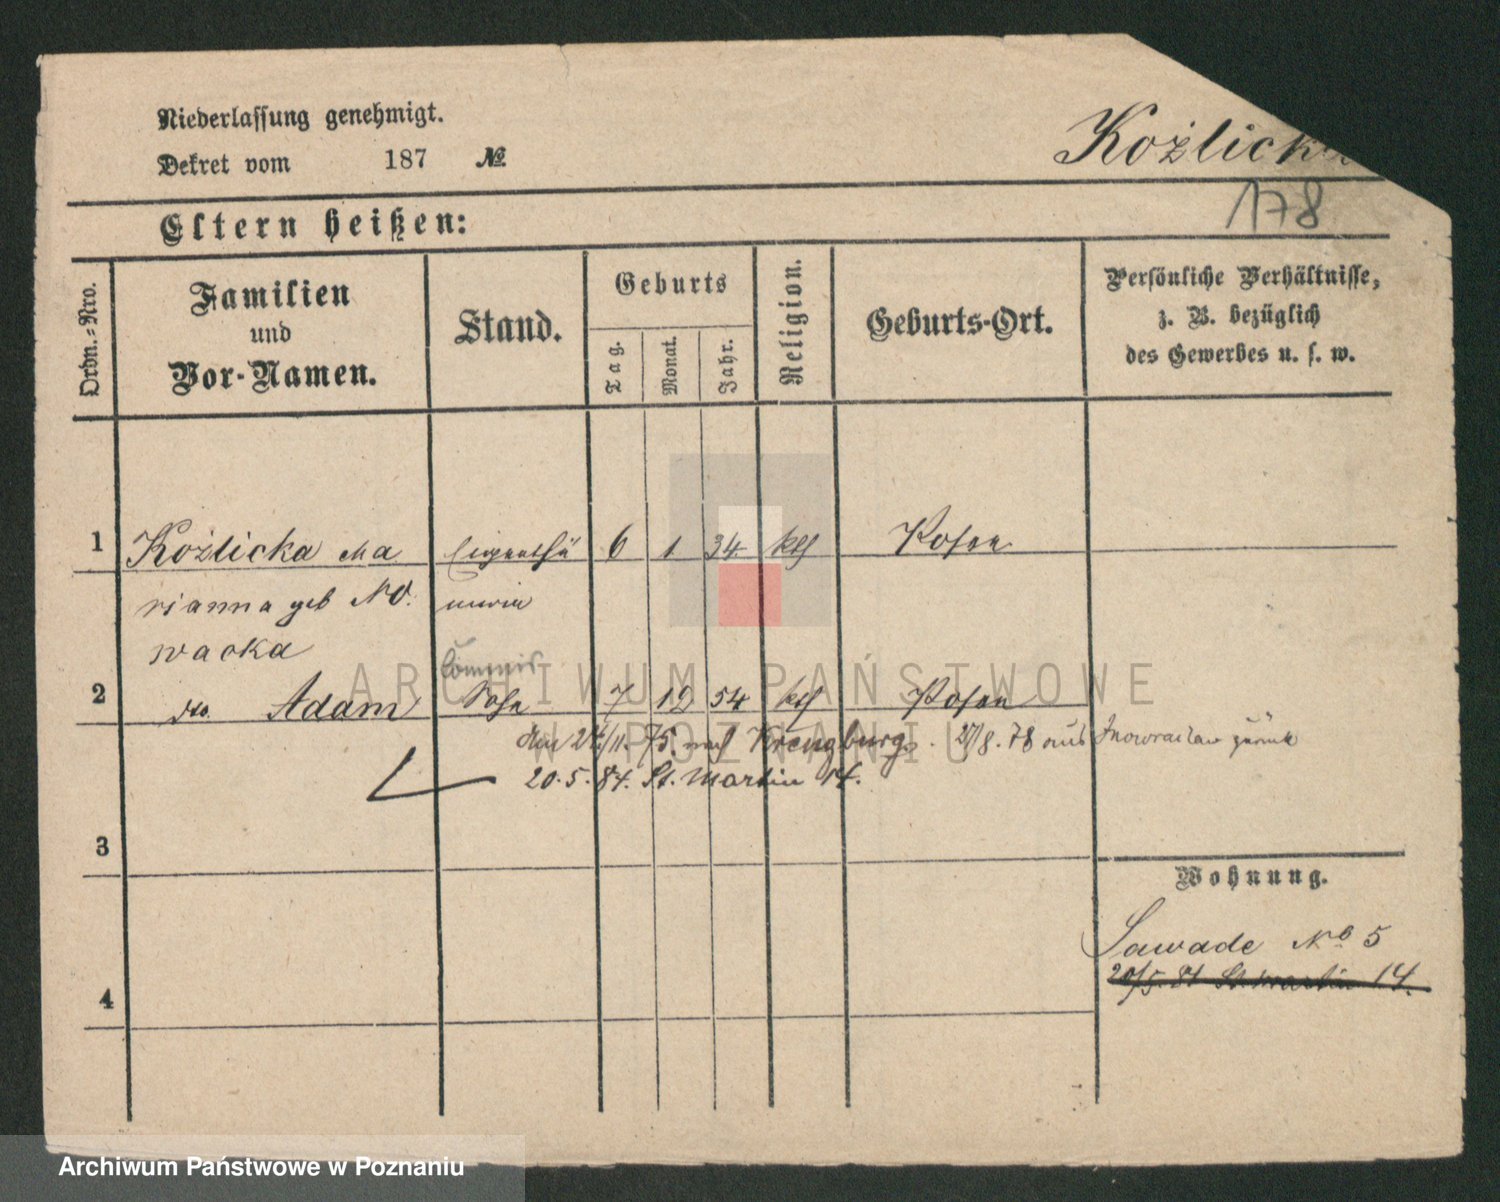 Niederlassung genehmigt.
Dekret vom 187 №
Kożlicka
178
Eltern heißen:
Ordn.-Nro.
Familien
und
Vor-Namen.
Stand.
Geburts
Tag.
Monat.
Jahr.
Religion.
Geburts-Ort.
Persönliche Verhältnisse,
z. B. bezüglich
des Gewerbes u. s. w.
1 Kożlicka Ma Eigenthü 6 1 34 kth Posen
rianna geb No. merin
wacka
Commis
2 do. Adam Sohn 7 12 54 kth Posen
nach Kreuzburg. 27/8. 78 aus Inowraclaw zurück
20. 5. 84. St. Martin 14.
3
Wohnung.
Sawade No 5
20/5. 84 St Martin 14.
4
ARCHIWUM PAŃSTWOWE
W POZNANIU
Archiwum Państwowe w Poznaniu